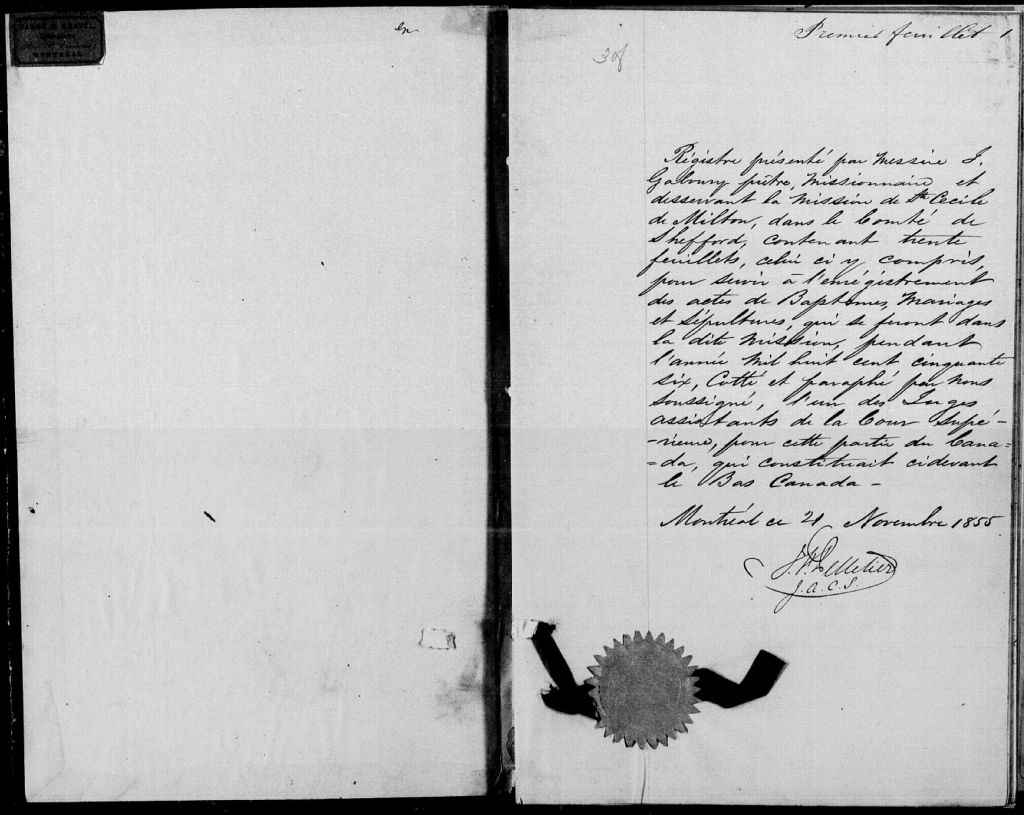 MONTREAL
Premier feuillet 1
Régistre présenté par Messire J.
Gaboury prêtre, Missionnaire et
desservant la Mission de Ste Cecile
de Milton, dans le Comté de
Shefford, contenant trente
feuillets, celui ci y compris,
pour servir à l'enrégistrement
des actes de Baptêmes, Mariages
et Sépultures, qui se feront dans
la dite Mission, pendant
l'année Mil huit cent cinquante
six, Cotté et paraphé par nous
Soussigné, l'un des Juges
assistants de la Cour Supé-
-rieure, pour cette partie du Cana=
=da, qui constituait cidevant
le Bas Canada -
Montréal ce 21 Novembre 1855
Pelletier
J.A.C.S.